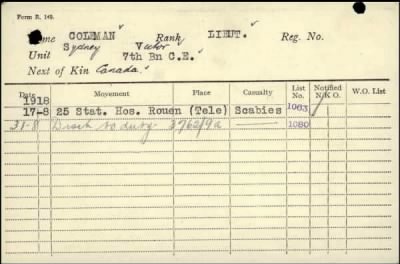 Form R. 149.
Name COLEMAN Rank LIEUT. Reg. No.
Sydney Victor
Unit 7th Bn C.E.
Next of Kin Canada.
Date Movement Place Casualty List No. Notified N.K.O. W.O. List
1918
17-8 25 Stat. Hos. Rouen (Tele) Scabies 1063
31-8 Disch to duty 3762/9a 1080